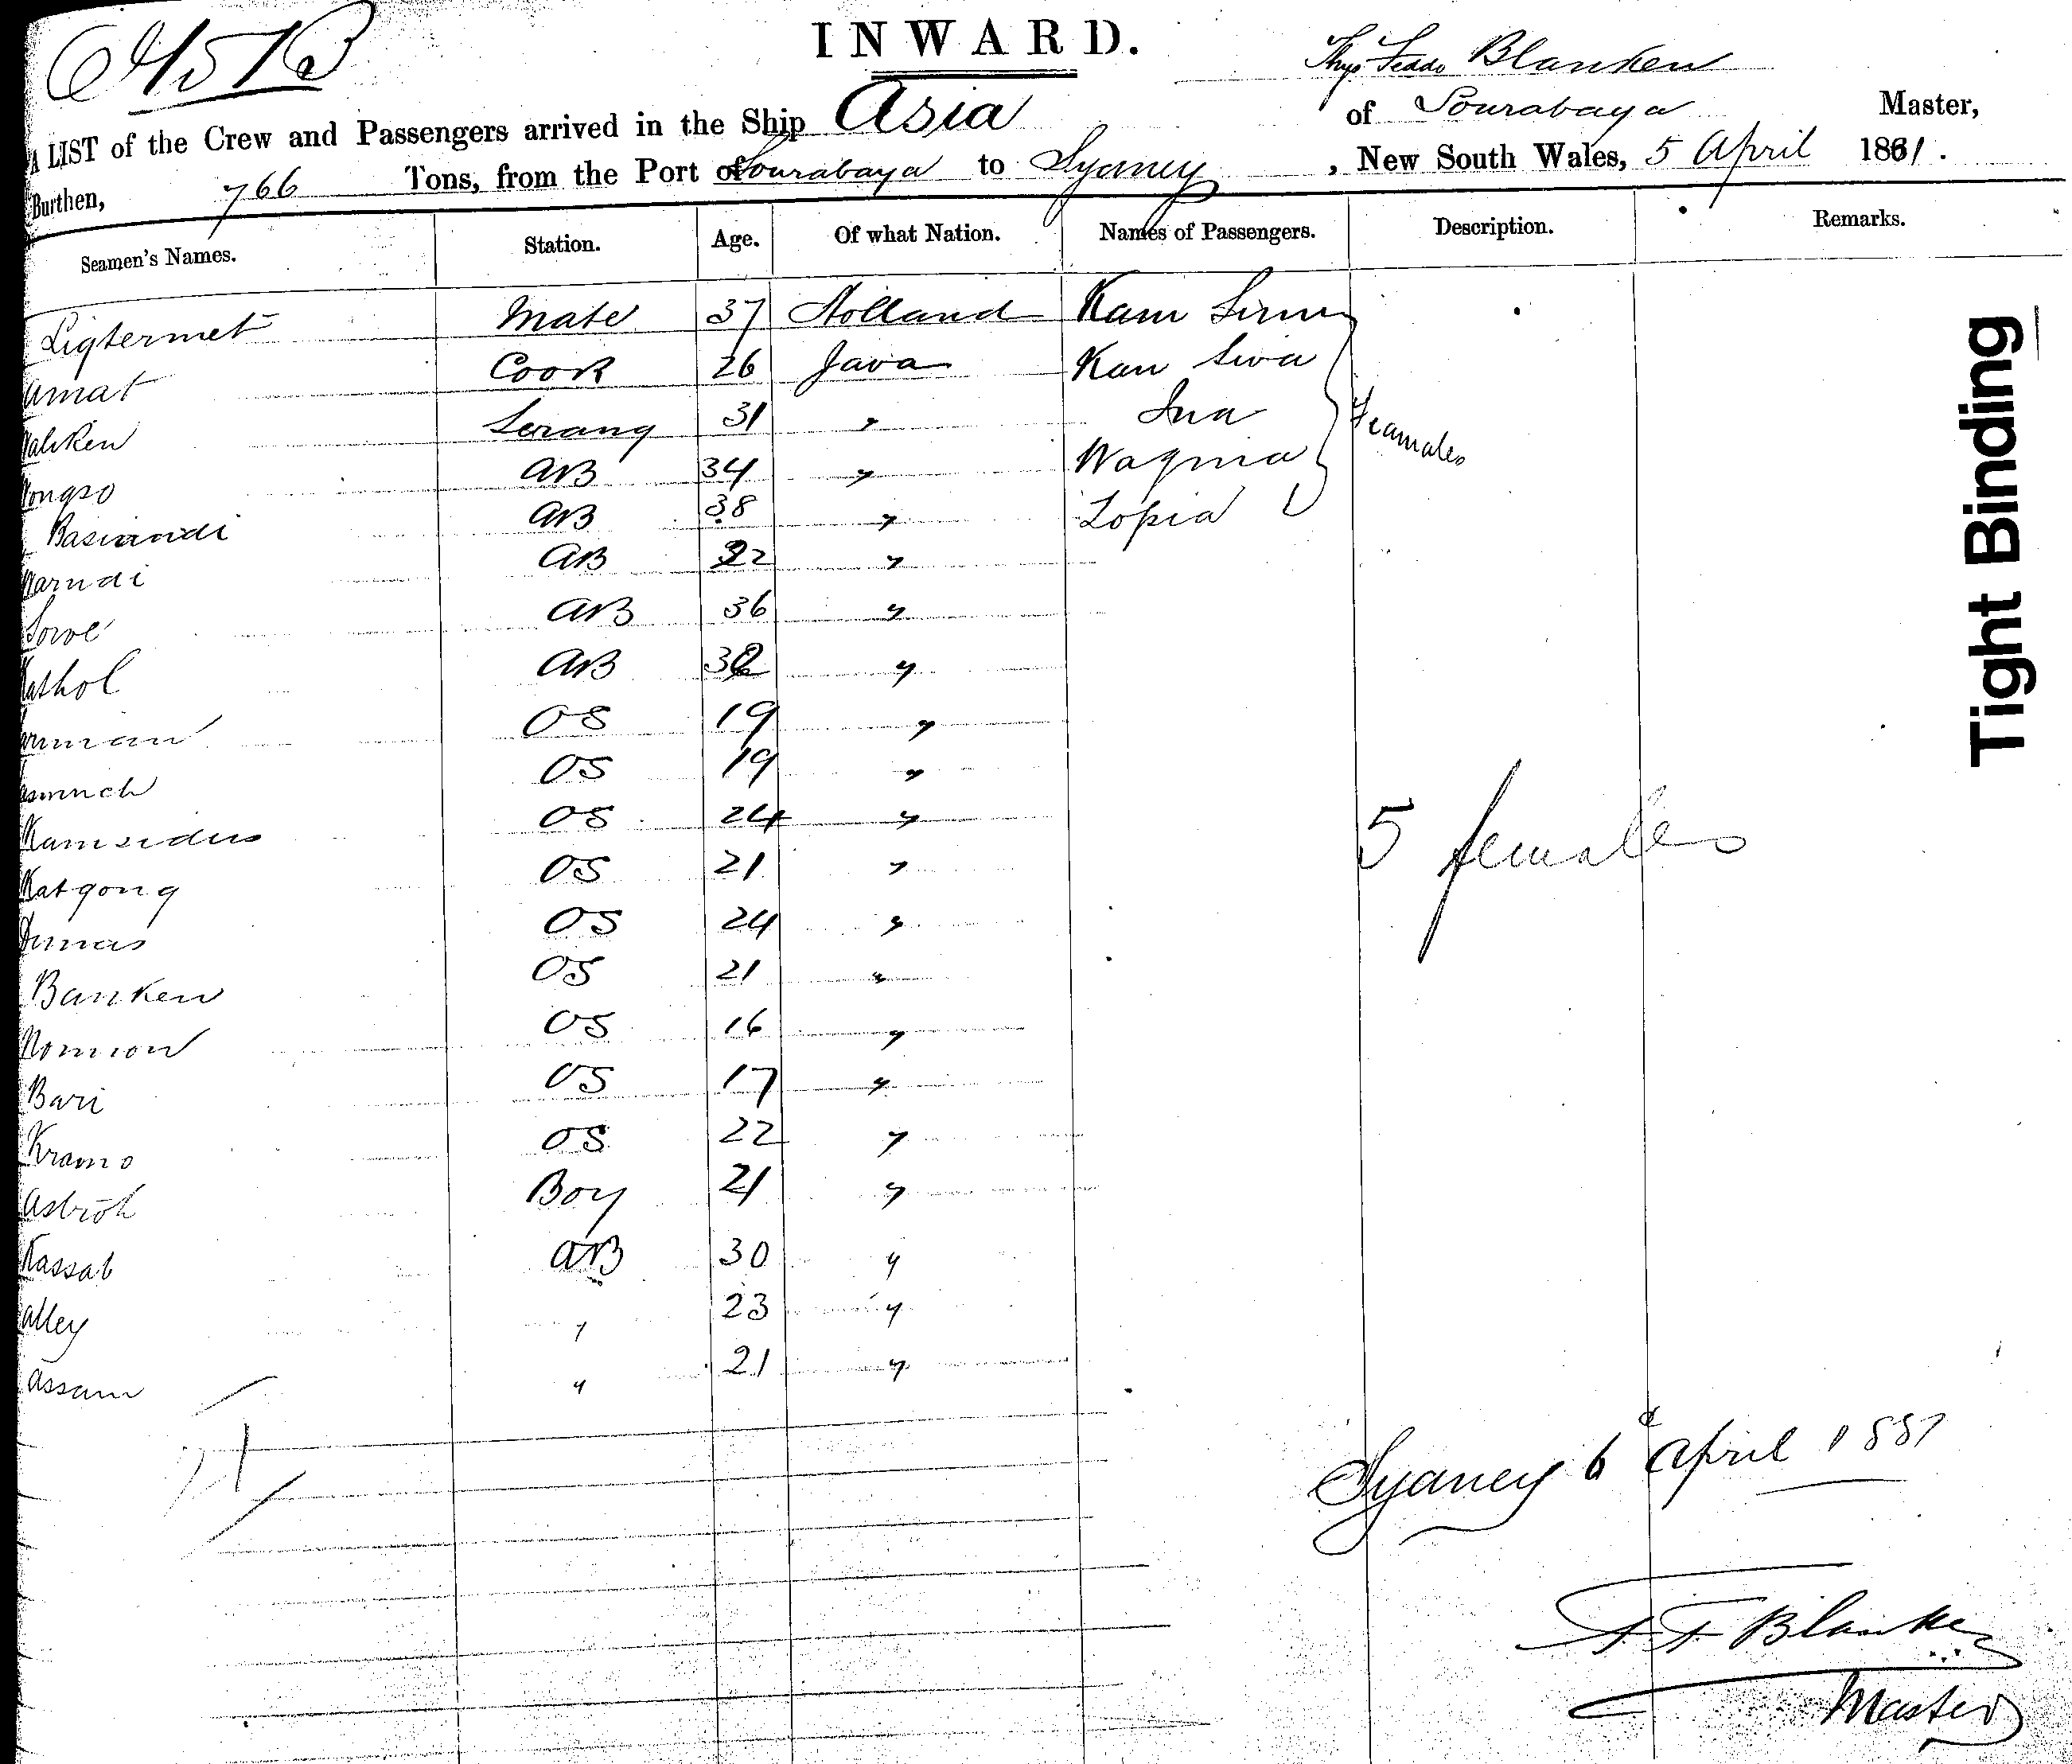 INWARD.
Blanken
A LIST of the Crew and Passengers arrived in the Ship Asia of Sourabaya Master,
Burthen, 766 Tons, from the Port of Sourabaya to Sydney, New South Wales, 5 April 1881.
Seamen's Names. Station. Age. Of what Nation. Names of Passengers. Description. Remarks.
Ligtermet Mate 37 Holland Kam
amat Cook 26 Java Kan Siva
Serang 31 " Ina
AB 34 " Wagina
Basiandi AB 38 " Sopia
Feamales
arndi AB 22 "
Sowe AB 36 "
AB "
OS 19 "
OS 19 "
Kamsidus OS 24 "
Katgong OS 21 "
OS 24 "
Banken OS 21 "
Nomion OS 16 "
Bari OS 17 "
Kramo OS 22 "
Astroh Boy 21 "
Kassab AB 30 "
alley " 23 "
assam " 21 "
5 females
Tight Binding
Sydney 6 April 1881
Blanken
Master